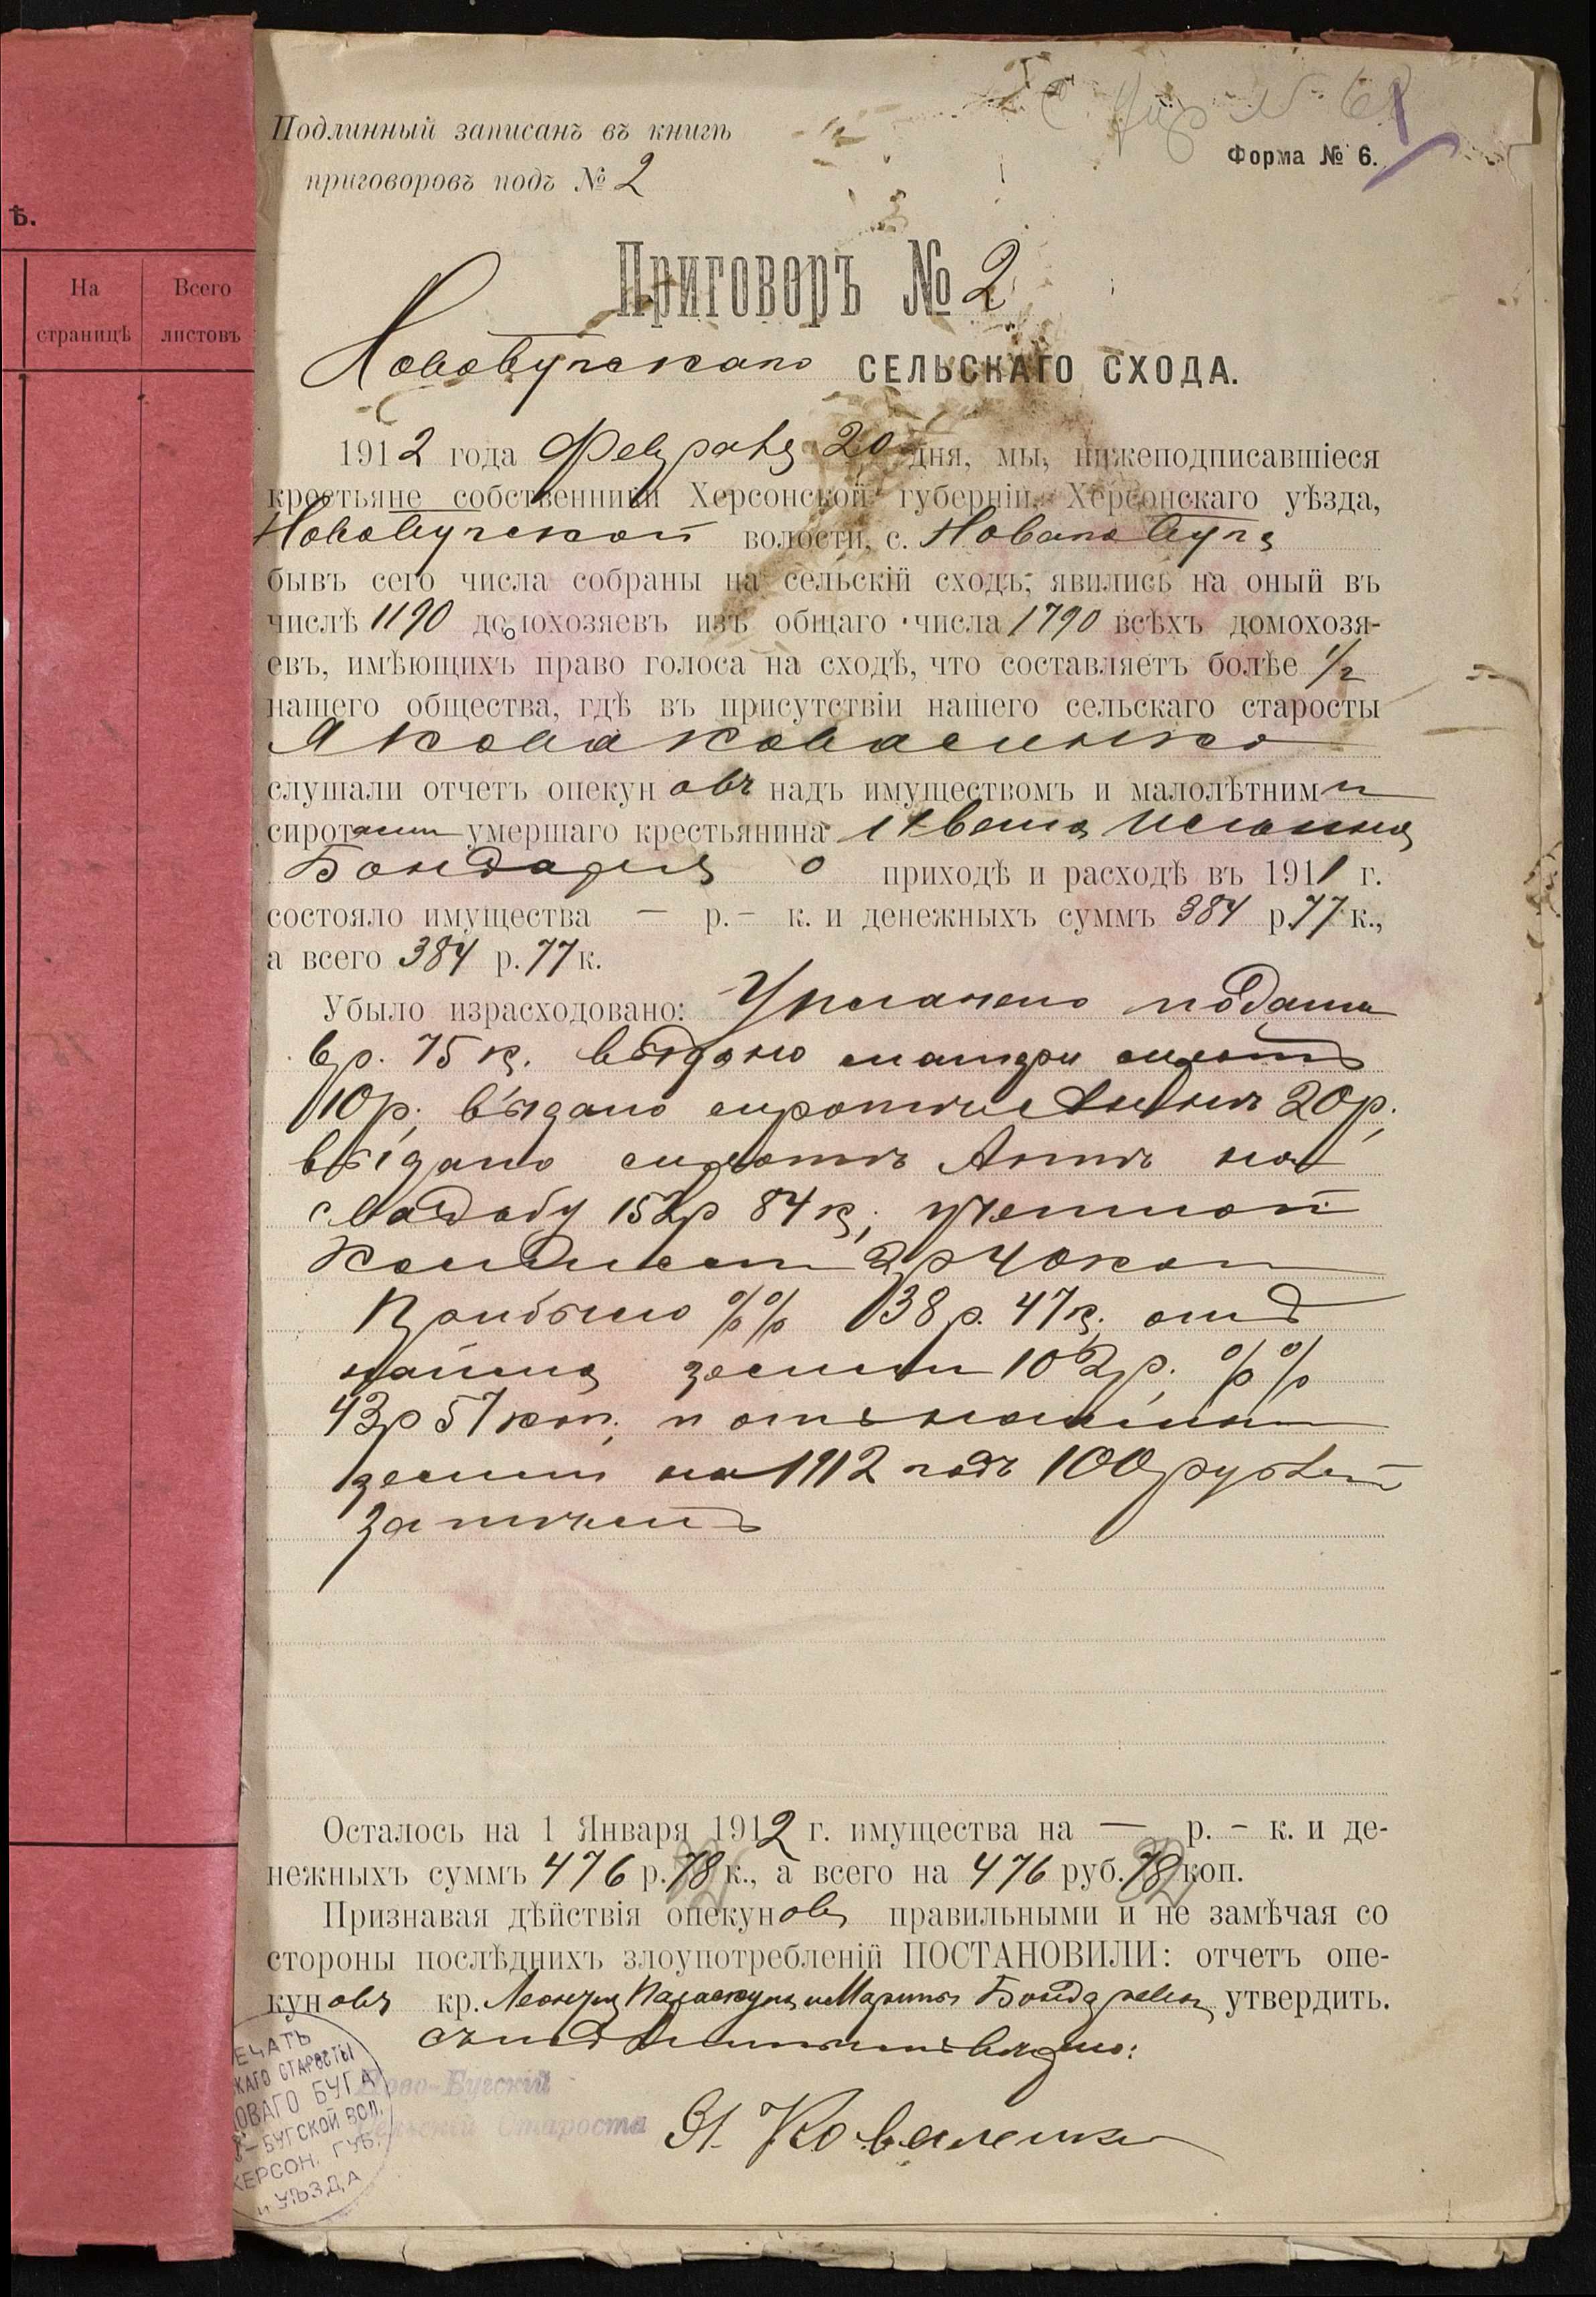 ѣ.
На
страницѣ
Всего
листовъ
Подлинный записанъ въ книгѣ
приговоровъ подъ № 2
Форма № 6.
Приговоръ № 2
Новобугскаго СЕЛЬСКАГО СХОДА.
1912 года Февраля 20 дня, мы, нижеподписавшіеся
крестьяне собственники Херсонской губерніи, Херсонскаго уѣзда,
Новобугской волости, с. Новаго Буга
бывъ сего числа собраны на сельскій сходъ, явились на оный въ
числѣ 1190 домохозяевъ изъ общаго числа 1790 всѣхъ домохозя-
евъ, имѣющихъ право голоса на сходѣ, что составляетъ болѣе 1/2
нашего общества, гдѣ въ присутствіи нашего сельскаго старосты
Якова Коваленко
слушали отчетъ опекуновъ надъ имуществомъ и малолѣтними
сиротами умершаго крестьянина
Бондаря о приходѣ и расходѣ въ 1911 г.
состояло имущества — р. – к. и денежныхъ суммъ 384 р. 77 к.,
а всего 384 р. 77 к.
Убыло израсходовано: Уплачено подати
6 р. 75 к. выдано матери сиротъ
10 р; выдано сиротѣ 20 р;
выдано сиротѣ Аннѣ на
свадьбу 152 р 84 к;
2 р 40 коп
Прибыло %% 138 р. 47 к; отъ
найма земли 102 р; %%
43 р 57 коп; и отъ найма
земли на 1912 годъ 100 рублей
Осталось на 1 Января 1912 г. имущества на — р. – к. и де-
нежныхъ суммъ 476 р. 78 к., а всего на 476 руб. 78 коп.
Признавая дѣйствія опекуновъ правильными и не замѣчая со
стороны послѣднихъ злоупотребленій ПОСТАНОВИЛИ: отчетъ опе-
куновъ кр. Леонтія и Марины Бондаревы утвердить.
Съ подлиннымъ вѣрно:
Ново-Бугскій
Сельскій Староста Я. Коваленко
ПЕЧАТЬ
СКАГО СТАРОСТЫ
НОВАГО БУГА
–БУГСКОЙ ВОЛ.
ХЕРСОН. ГУБ.
и УѢЗДА